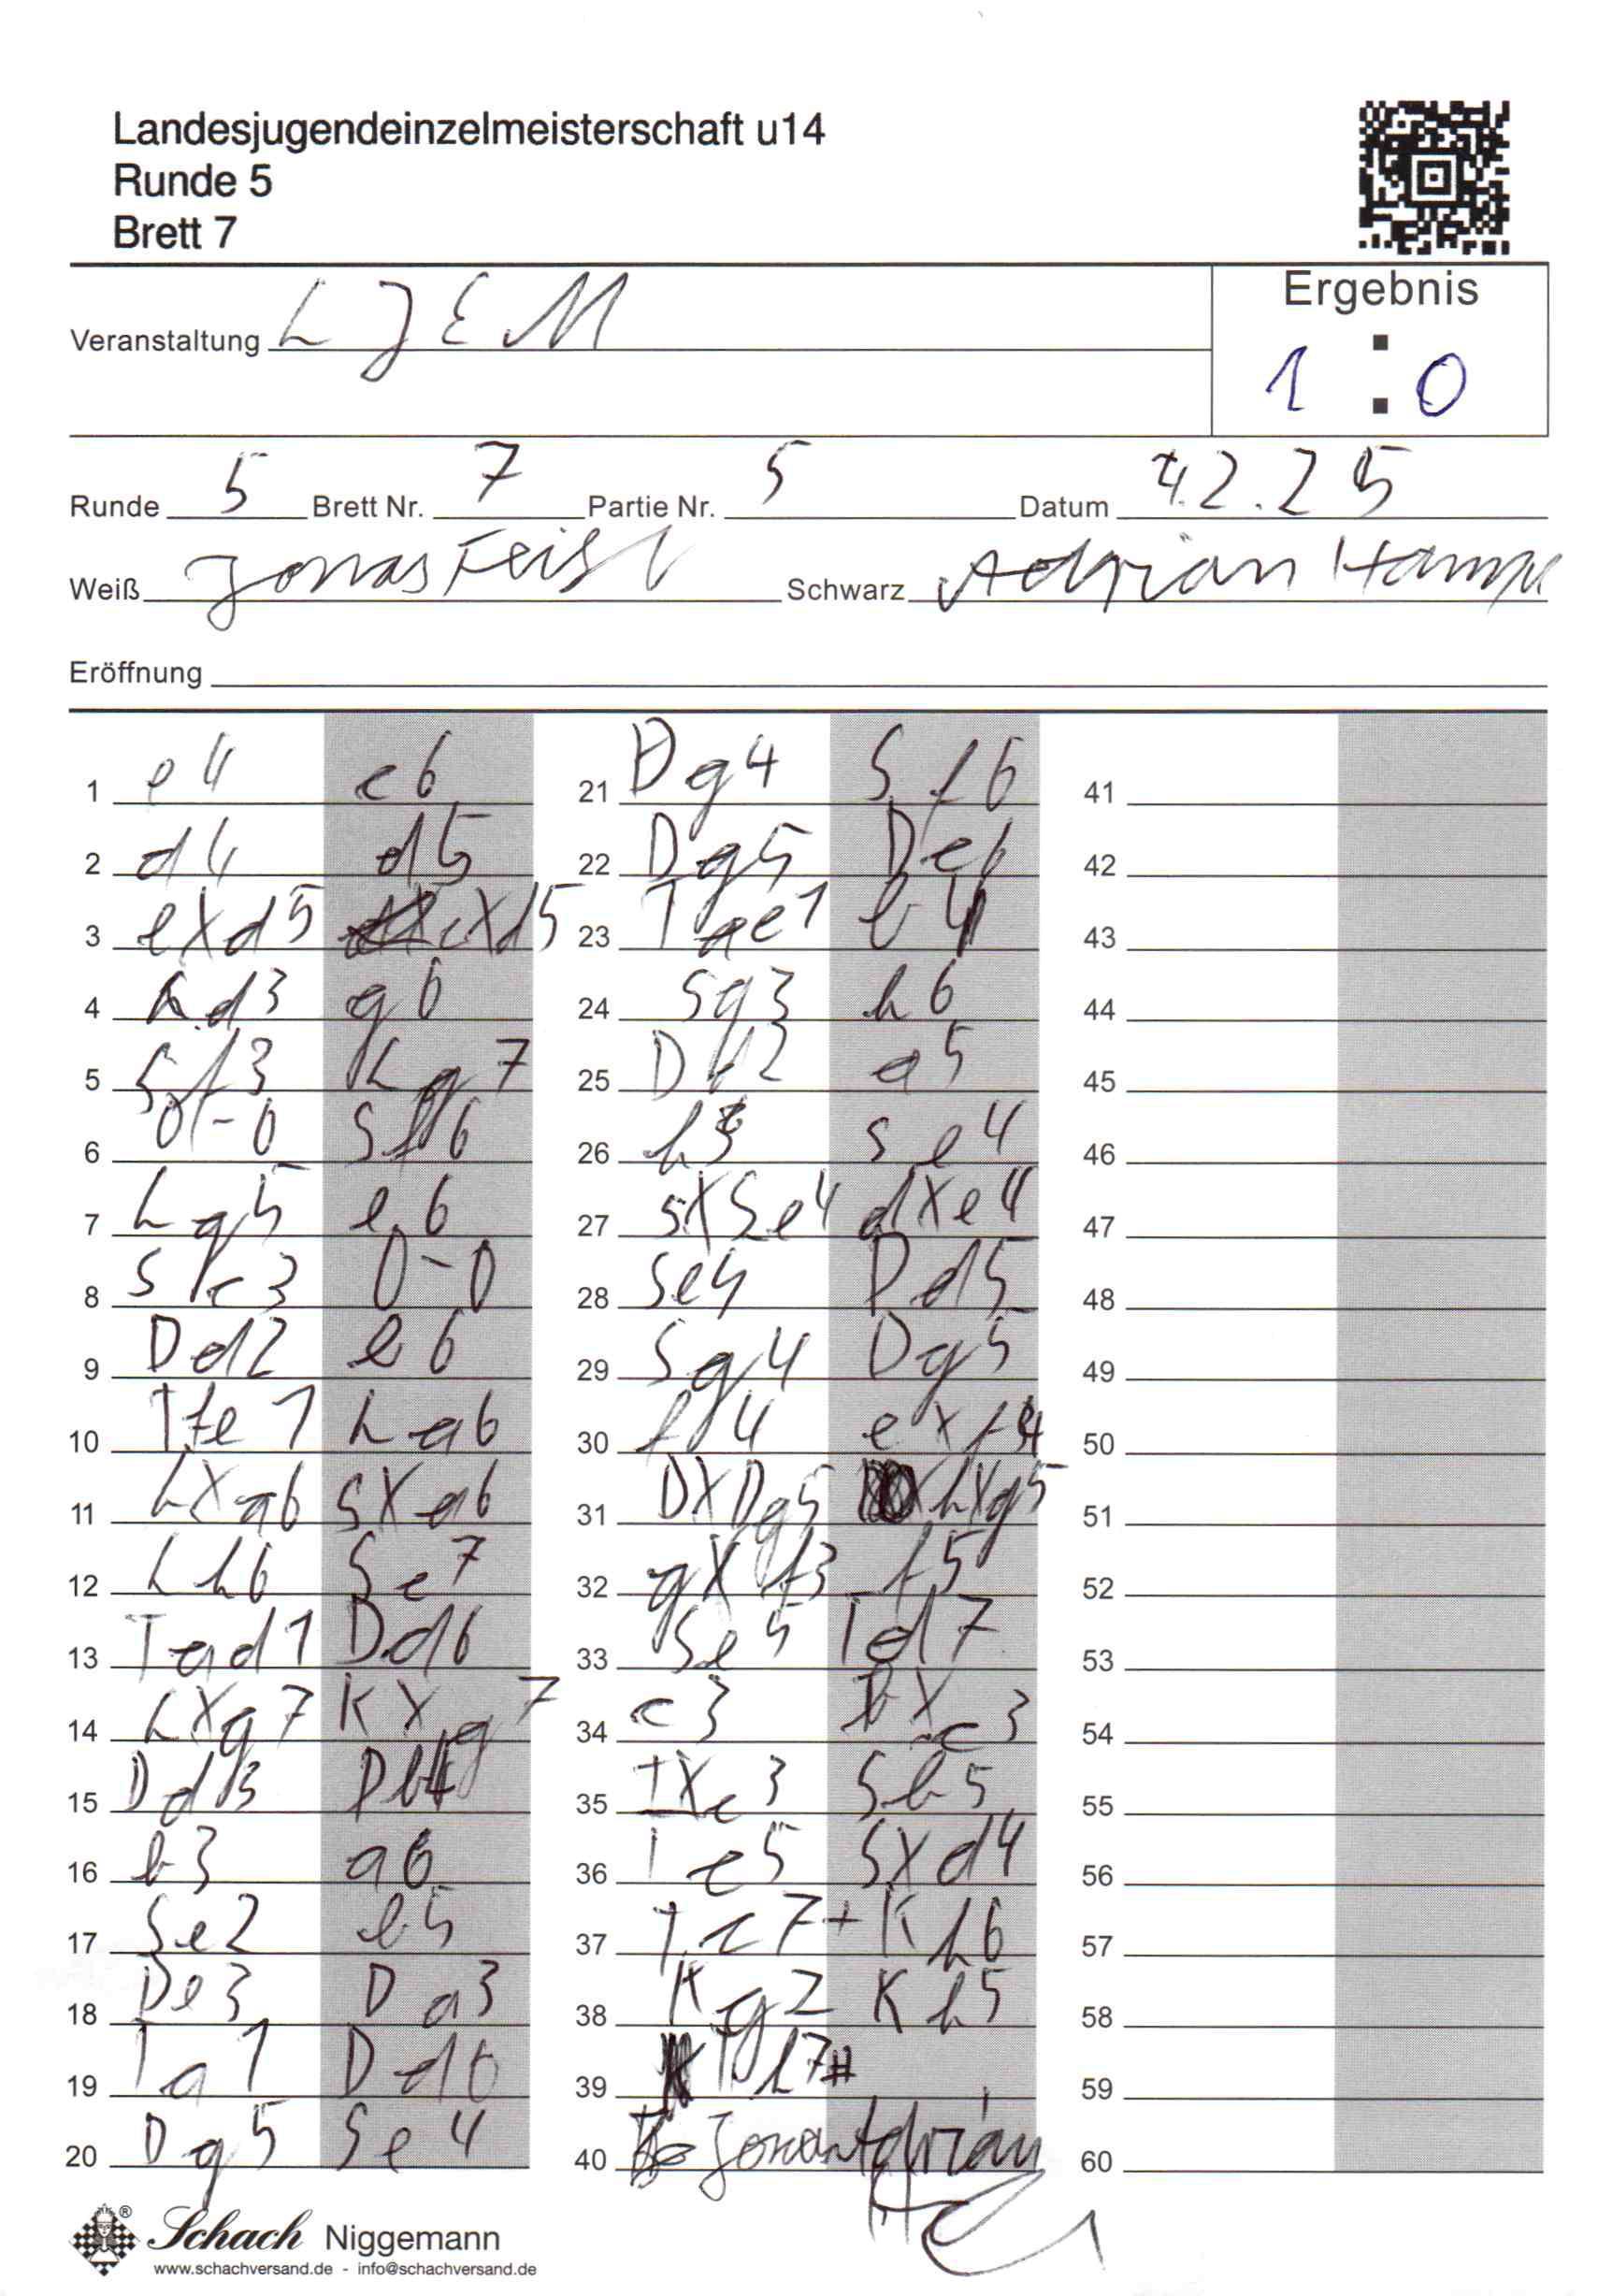 Landesjugendeinzelmeisterschaft u14
Runde 5
Brett 7
Veranstaltung LJEM
Ergebnis
1 : 0
Runde 5 Brett Nr. 7 Partie Nr. 5 Datum 2.25
Weiß Jonas Schwarz Adrian
Eröffnung
1 e4 e6
2 d4 d5
3 exd5 exd5
4 Ld3 g6
5 Sf3 Lg7
6 0-0 Sf6
7 Lg5 c6
8 Sc3 0-0
9 Dd2 b6
10 Tfe1 La6
11 Lxa6 Sxa6
12 Lh6 Sc7
13 Tad1 Dd6
14 Lxg7 Kxg7
15 Dd3 Db4
16 b3 a6
17 Se2 b5
18 De3 Da3
19 Ta1 Dd6
20 Dg5 Se4
21 Dg4 Sf6
22 Dg5 De6
23 Tae1 b4
24 Sg3 h6
25 Dd2 a5
26 h3 Se4
27 SxSe4 dxe4
28 Se5 Dd5
29 Sg4 Dg5
30 f4 exf3
31 DxDg5 hxg5
32 gxf3 f5
33 Se5 Td7
34 c3 bxc3
35 Txc3 Sb5
36 Tc5 Sxd4
37 Tc7+ Kh6
38 Kg2 Kh5
39 Th7#
40 Jonas Adrian
41
42
43
44
45
46
47
48
49
50
51
52
53
54
55
56
57
58
59
60
Schach Niggemann
www.schachversand.de - info@schachversand.de